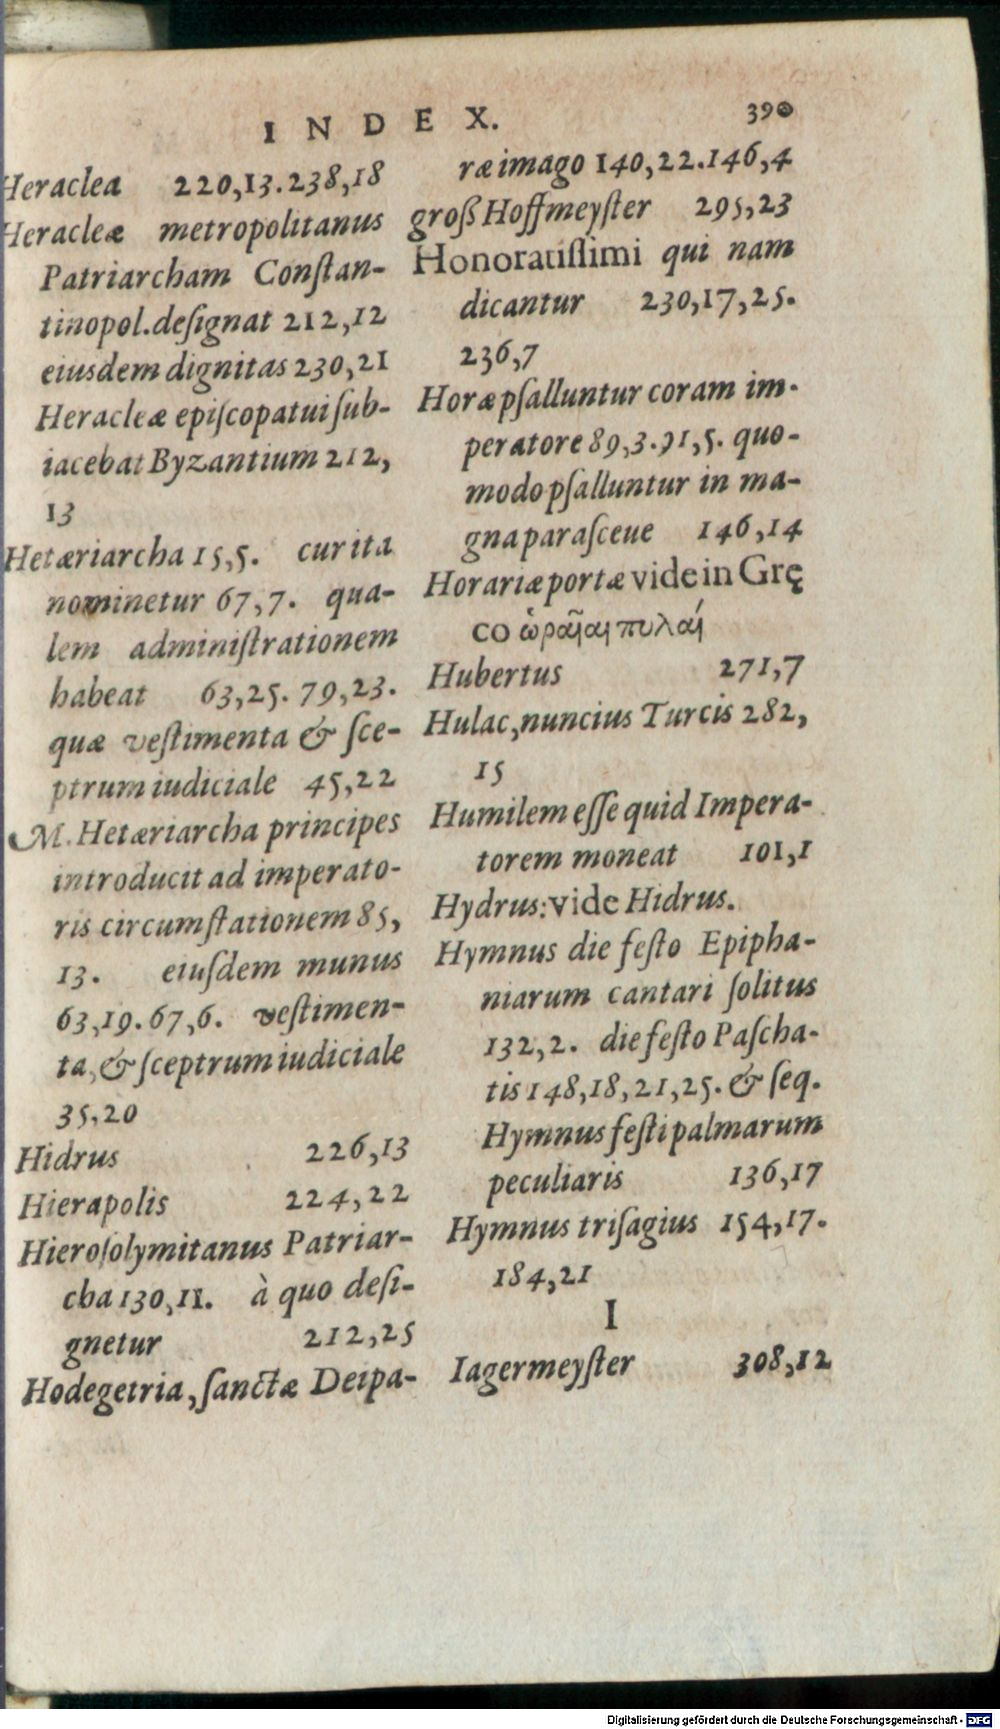 INDEX.
390
Heraclea 220,13.238,18
Heracleæ metropolitanus
Patriarcham Conſtan-
tinopol.deſignat 212,12
eiusdem dignitas 230,21
Heracleæ epiſcopatui ſub-
iacebat Byzantium 212,
13
Hetæriarcha 15,5. cur ita
nominetur 67,7. qua-
lem adminiſtrationem
habeat 63,25. 79,23.
quæ veſtimenta & ſce-
ptrum iudiciale 45,22
M. Hetæriarcha principes
introducit ad imperato-
ris circumſtationem 85,
13. eiuſdem munus
63,19. 67,6. veſtimen-
ta, & ſceptrum iudiciale
35,20
Hidrus 226,13
Hierapolis 224,22
Hieroſolymitanus Patriar-
cha 130,11. à quo deſi-
gnetur 212,25
Hodegetria, ſanctæ Deipa-
ræ imago 140,22.146,4
groß Hoffmeyſter 295,23
Honoratiſſimi qui nam
dicantur 230,17,25.
236,7
Horæ pſalluntur coram im-
peratore 89,3.91,5. quo-
modo pſalluntur in ma-
gna paraſceue 146,14
Horariæ portæ vide in Grę
co ὡραῖαι πυλαί
Hubertus 271,7
Hulac, nuncius Turcis 282,
15
Humilem eſſe quid Impera-
torem moneat 101,1
Hydrus: vide Hidrus.
Hymnus die feſto Epipha-
niarum cantari ſolitus
132,2. die feſto Paſcha-
tis 148,18,21,25. & ſeq.
Hymnus feſti palmarum
peculiaris 136,17
Hymnus triſagius 154,17.
184,21
I
Iagermeyſter 308,12
Digitalisierung gefördert durch die Deutsche Forschungsgemeinschaft - DFG